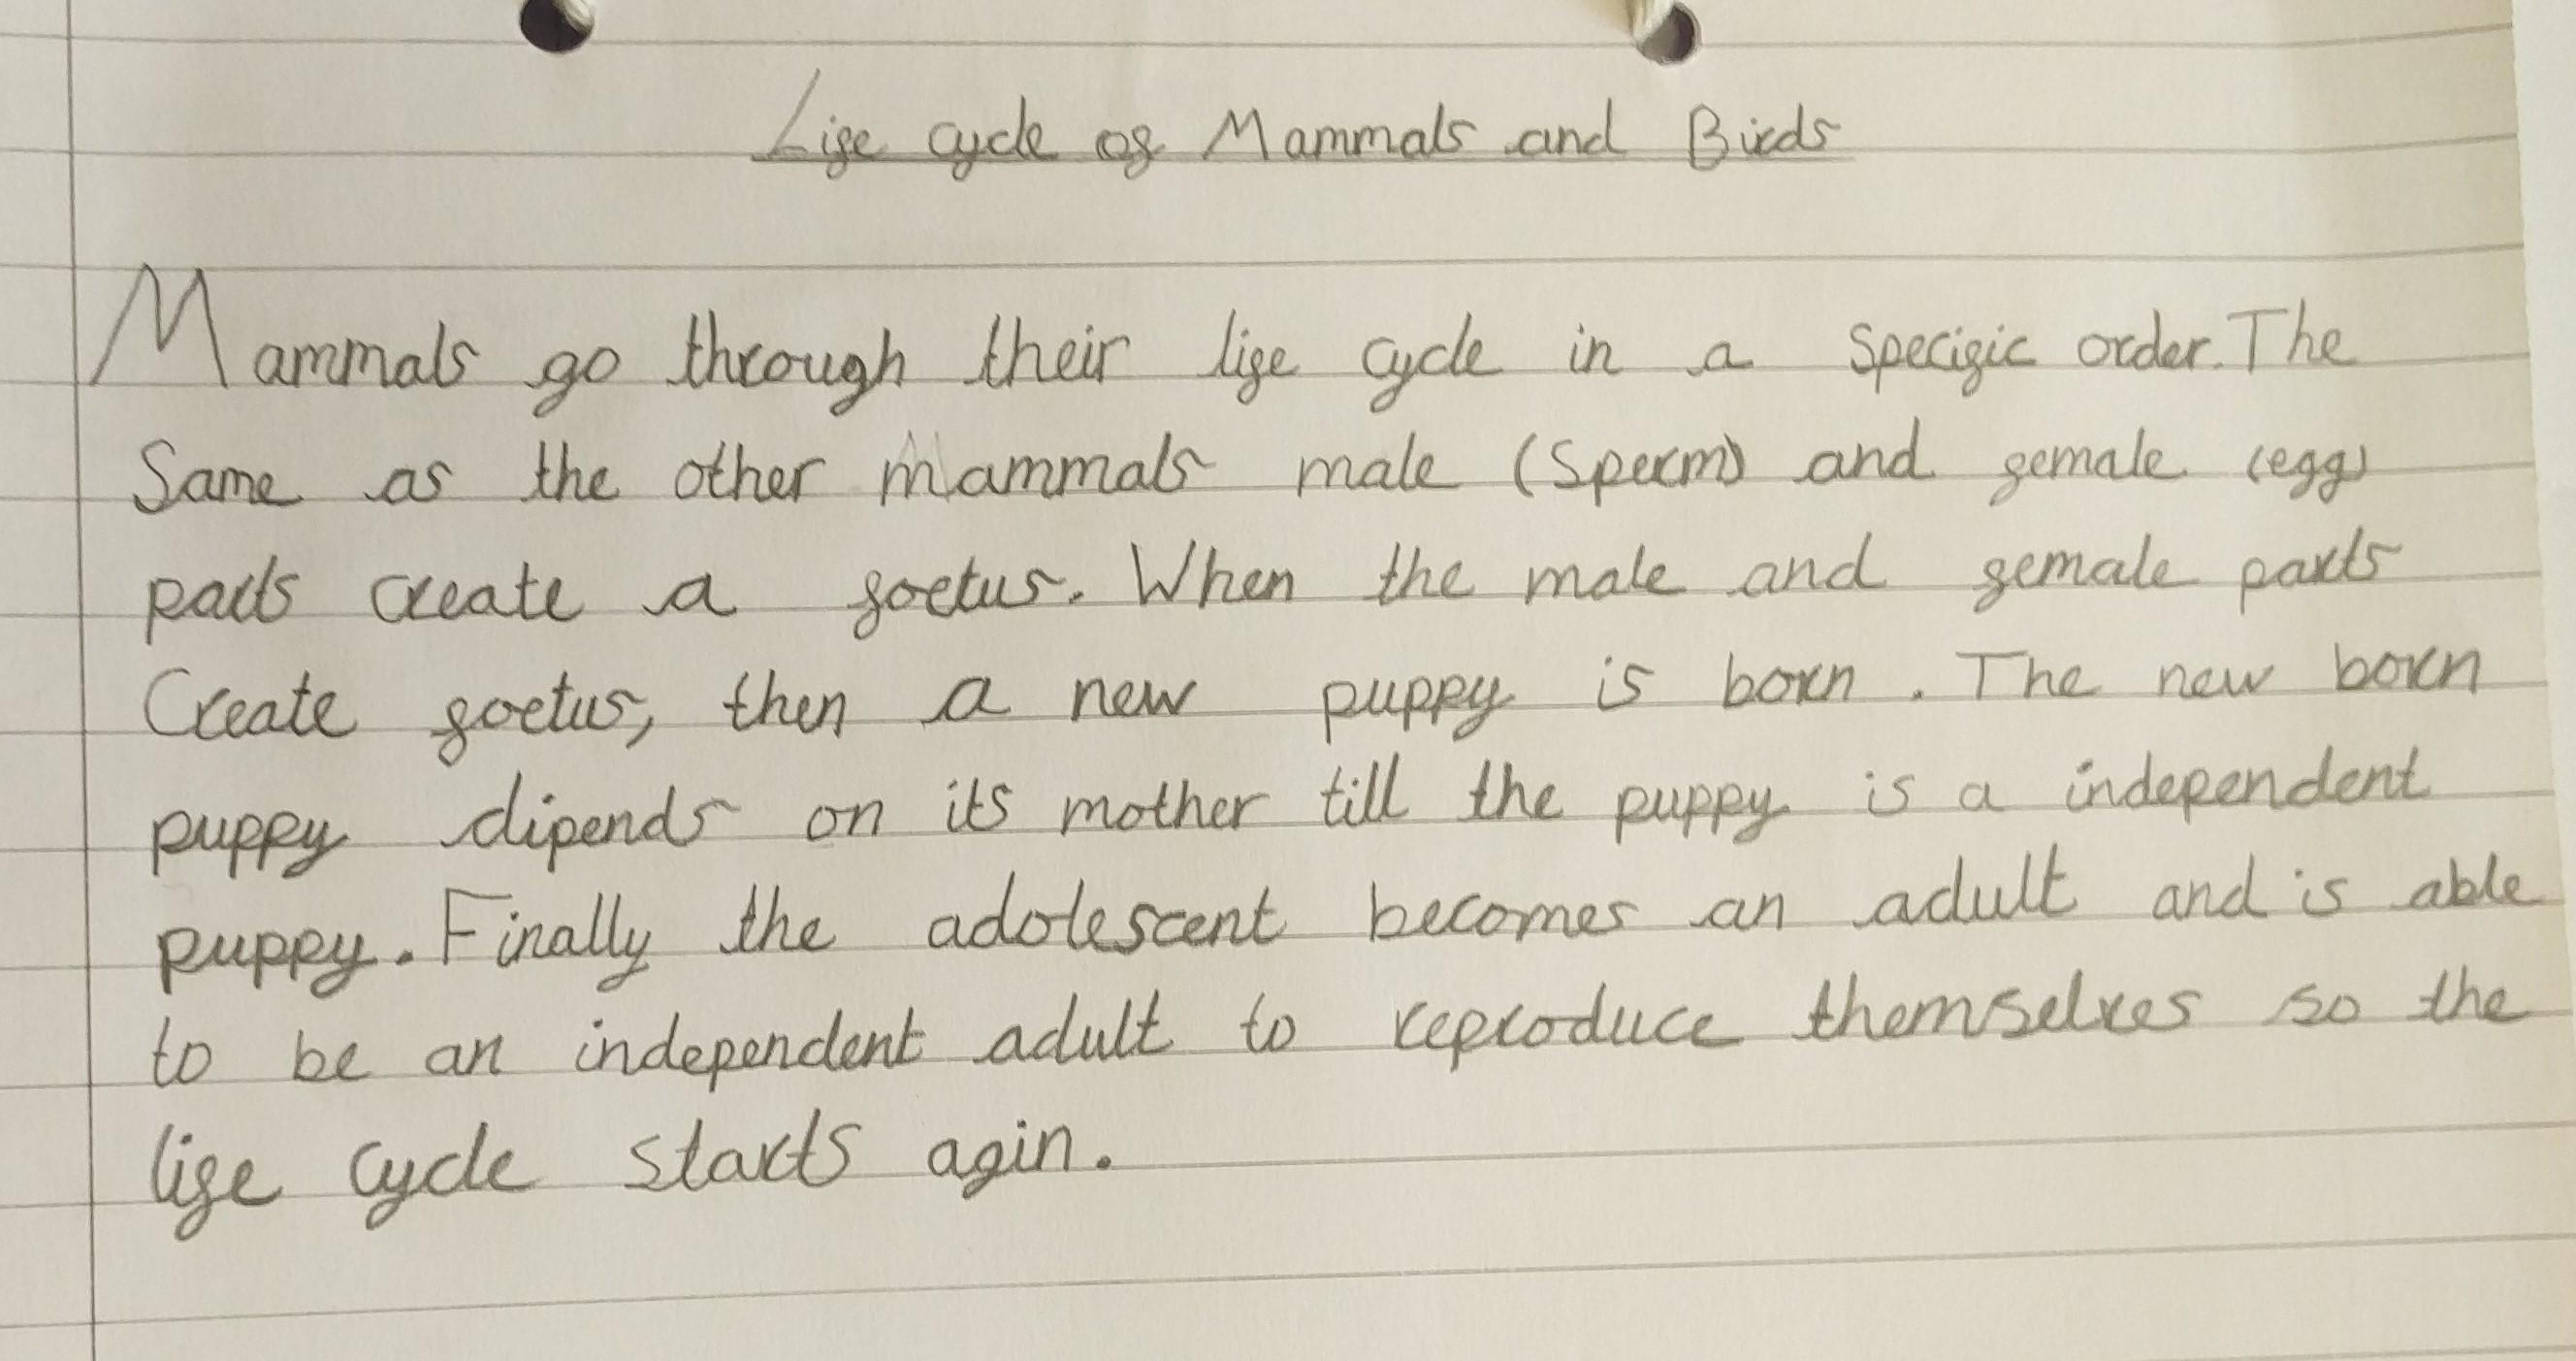 Life cycle of Mammals and Birds
Mammals go through their life cycle in a specific order. The
Same as the other mammals male (sperm) and female (egg)
parts create a foetus. When the male and female parts
Create foetus, then a new puppy is born. The new born
puppy dipends on its mother till the puppy is a independent
puppy. Finally the adolescent becomes an adult and is able
to be an independent adult to reproduce themselves so the
life cycle starts agin.